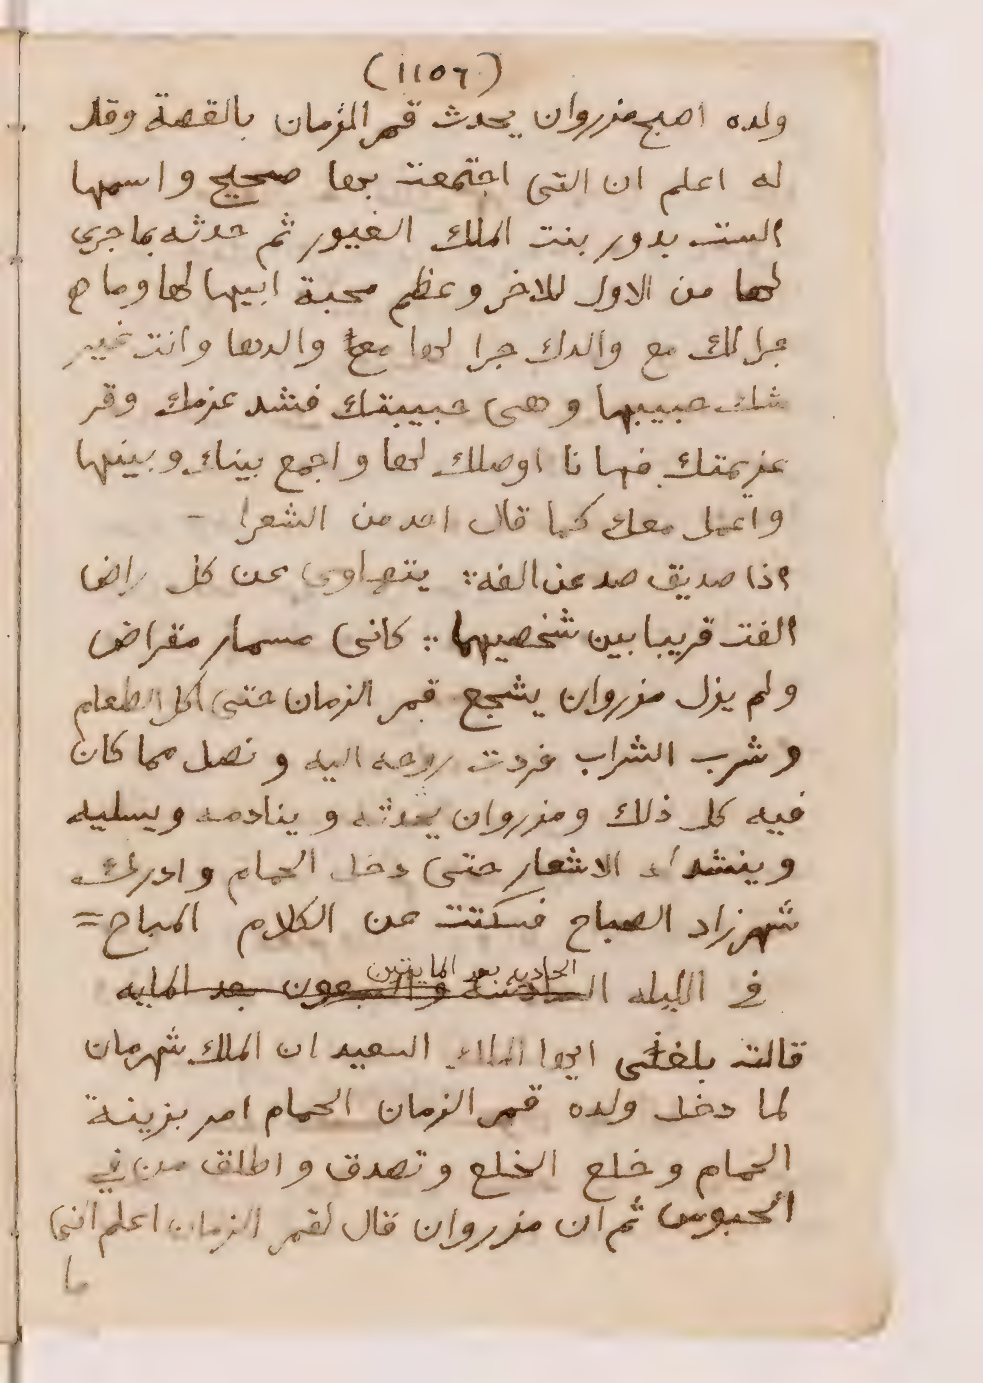 (١١٥٦)
ولده اصبح مزروان يحدث قمر الزمان بالقصة وقال
له اعلم ان التى اجتمعت بها صحيح واسمها
الست بدور بنت الملك الغيور ثم حدثه بما جري
لها من الاول للاخر وعظم محبة ابيها لها وما
جرا لك مع والدك جرا لها مع والدها وانت غير
شك حبيبها وهى حبيبتك فشد عزمك وقر
عزيمتك فها نا اوصلك لها واجمع بينك وبينها
واعمل معك كما قال احد من الشعرا -
اذا صديق صد عن الفه ؞ يتهاوى عن كل راض
الفت قريبا بين شخصيهما ؞ كانى مسمار مقراض
ولم يزل مزروان يشجع قمر الزمان حتى اكل الطعام
وشرب الشراب فردت روحه اليه ونصل مما كان
فيه كل ذلك ومزروان يحدثه وينادمه ويسليه
وينشد له الاشعار حتى دخل الحمام وادرك
شهرزاد الصباح فسكتت عن الكلام المباح =
الحاديه بعد المايتين
في الليله السادسة والتسعون بعد المايه
قالت بلغنى ايها الملك السعيد ان الملك شهرمان
لما دخل ولده قمر الزمان الحمام امر بزينة
الحمام وخلع الخلع وتصدق واطلق من في
الحبوس ثم ان مزروان قال لقمر الزمان اعلم اننى
ما